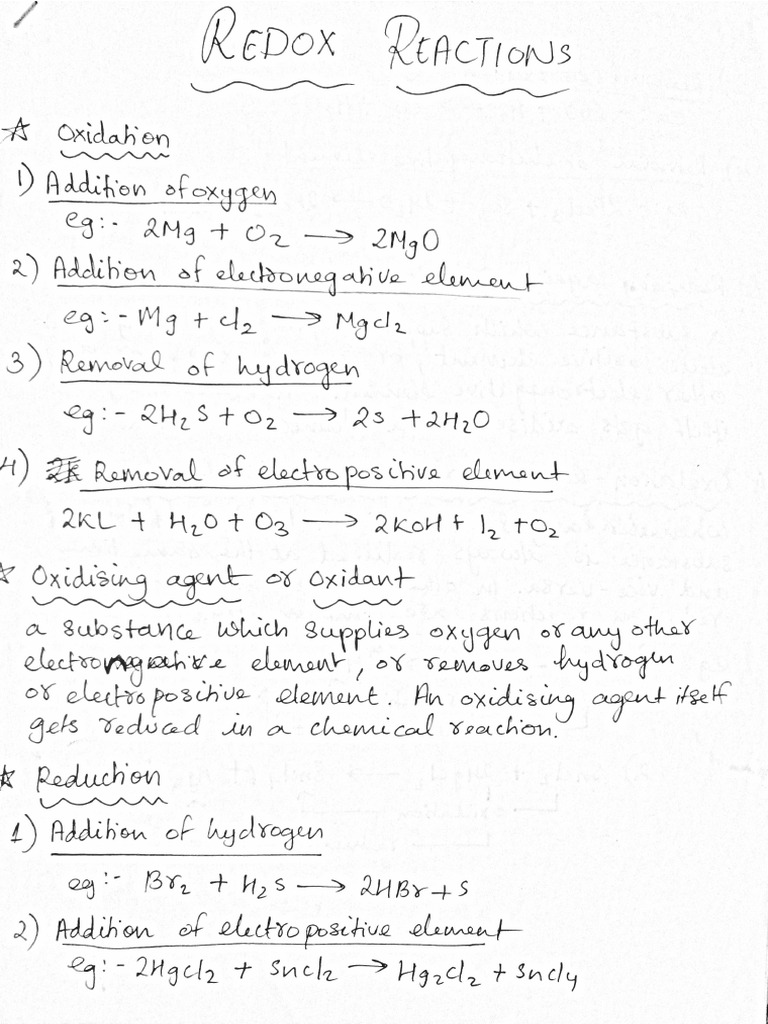 REDOX REACTIONS
☆ Oxidation
1) Addition of oxygen
eg:- 2Mg + O₂ → 2MgO
2) Addition of electronegative element
eg:- Mg + cl₂ → Mgcl₂
3) Removal of hydrogen
eg:- 2H₂S + O₂ → 2S + 2H₂O
4) Removal of electropositive element
2KL + H₂O + O₃ → 2KOH + I₂ + O₂
☆ Oxidising agent or Oxidant
a substance which supplies oxygen or any other
electronegative element, or removes hydrogen
or electropositive element. An oxidising agent itself
gets reduced in a chemical reaction.
☆ Reduction
1) Addition of hydrogen
eg:- Br₂ + H₂S → 2HBr + S
2) Addition of electropositive element
eg:- 2Hgcl₂ + Sncl₂ → Hg₂cl₂ + Sncl₄